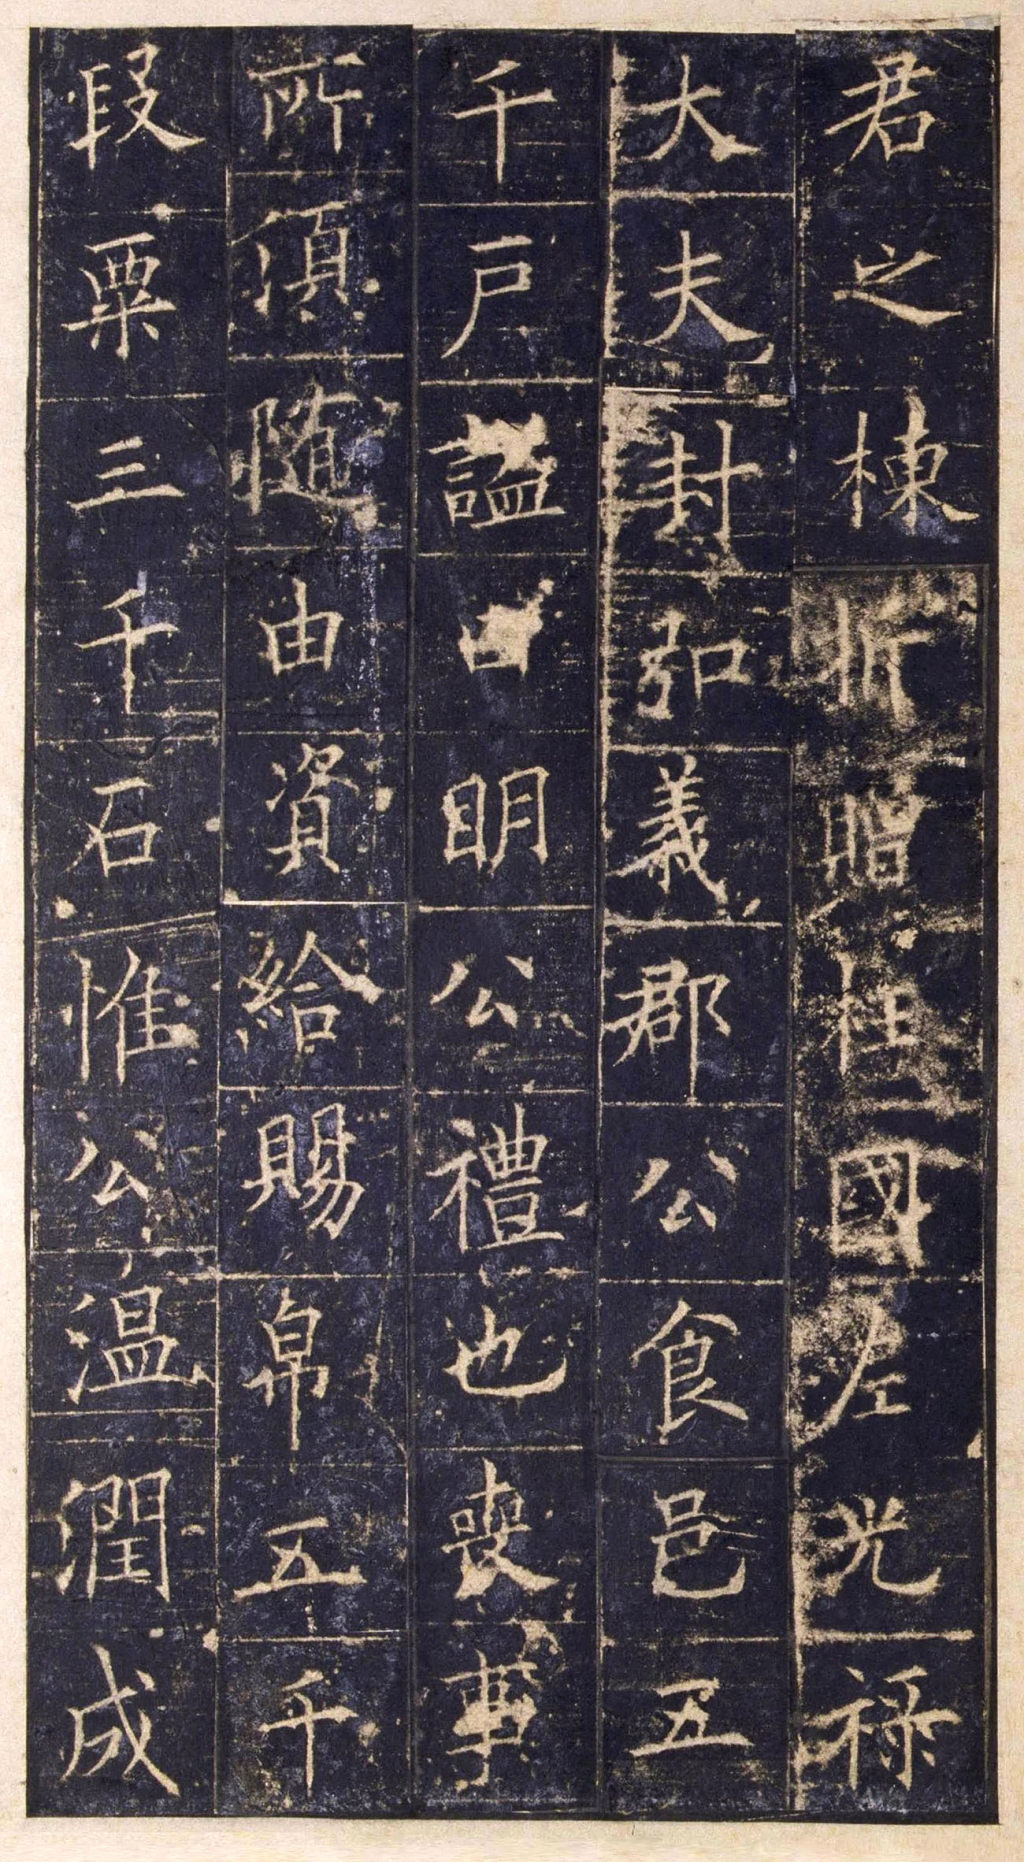 君之棟折贈柱國左光祿
大夫封弘義郡公食邑五
千戶謚曰明公禮也喪事
所須隨由資給賜帛五千
段粟三千石惟公温潤成